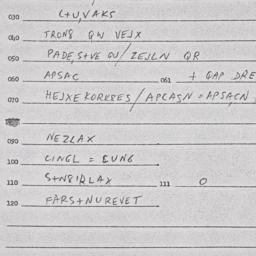 030 L+U,VAKS
040 TRONG QW VEJX
050 PADE,S+VE OU/ZEJLN QR
060 APSAC 061 + GAP DRE
070 HEJXE KORKSES/APCASN=APSACN
090 NEZLAX
100 LINGL = LUNG
110 S+NBIRLAX 111 O
120 FARS+NUREVET